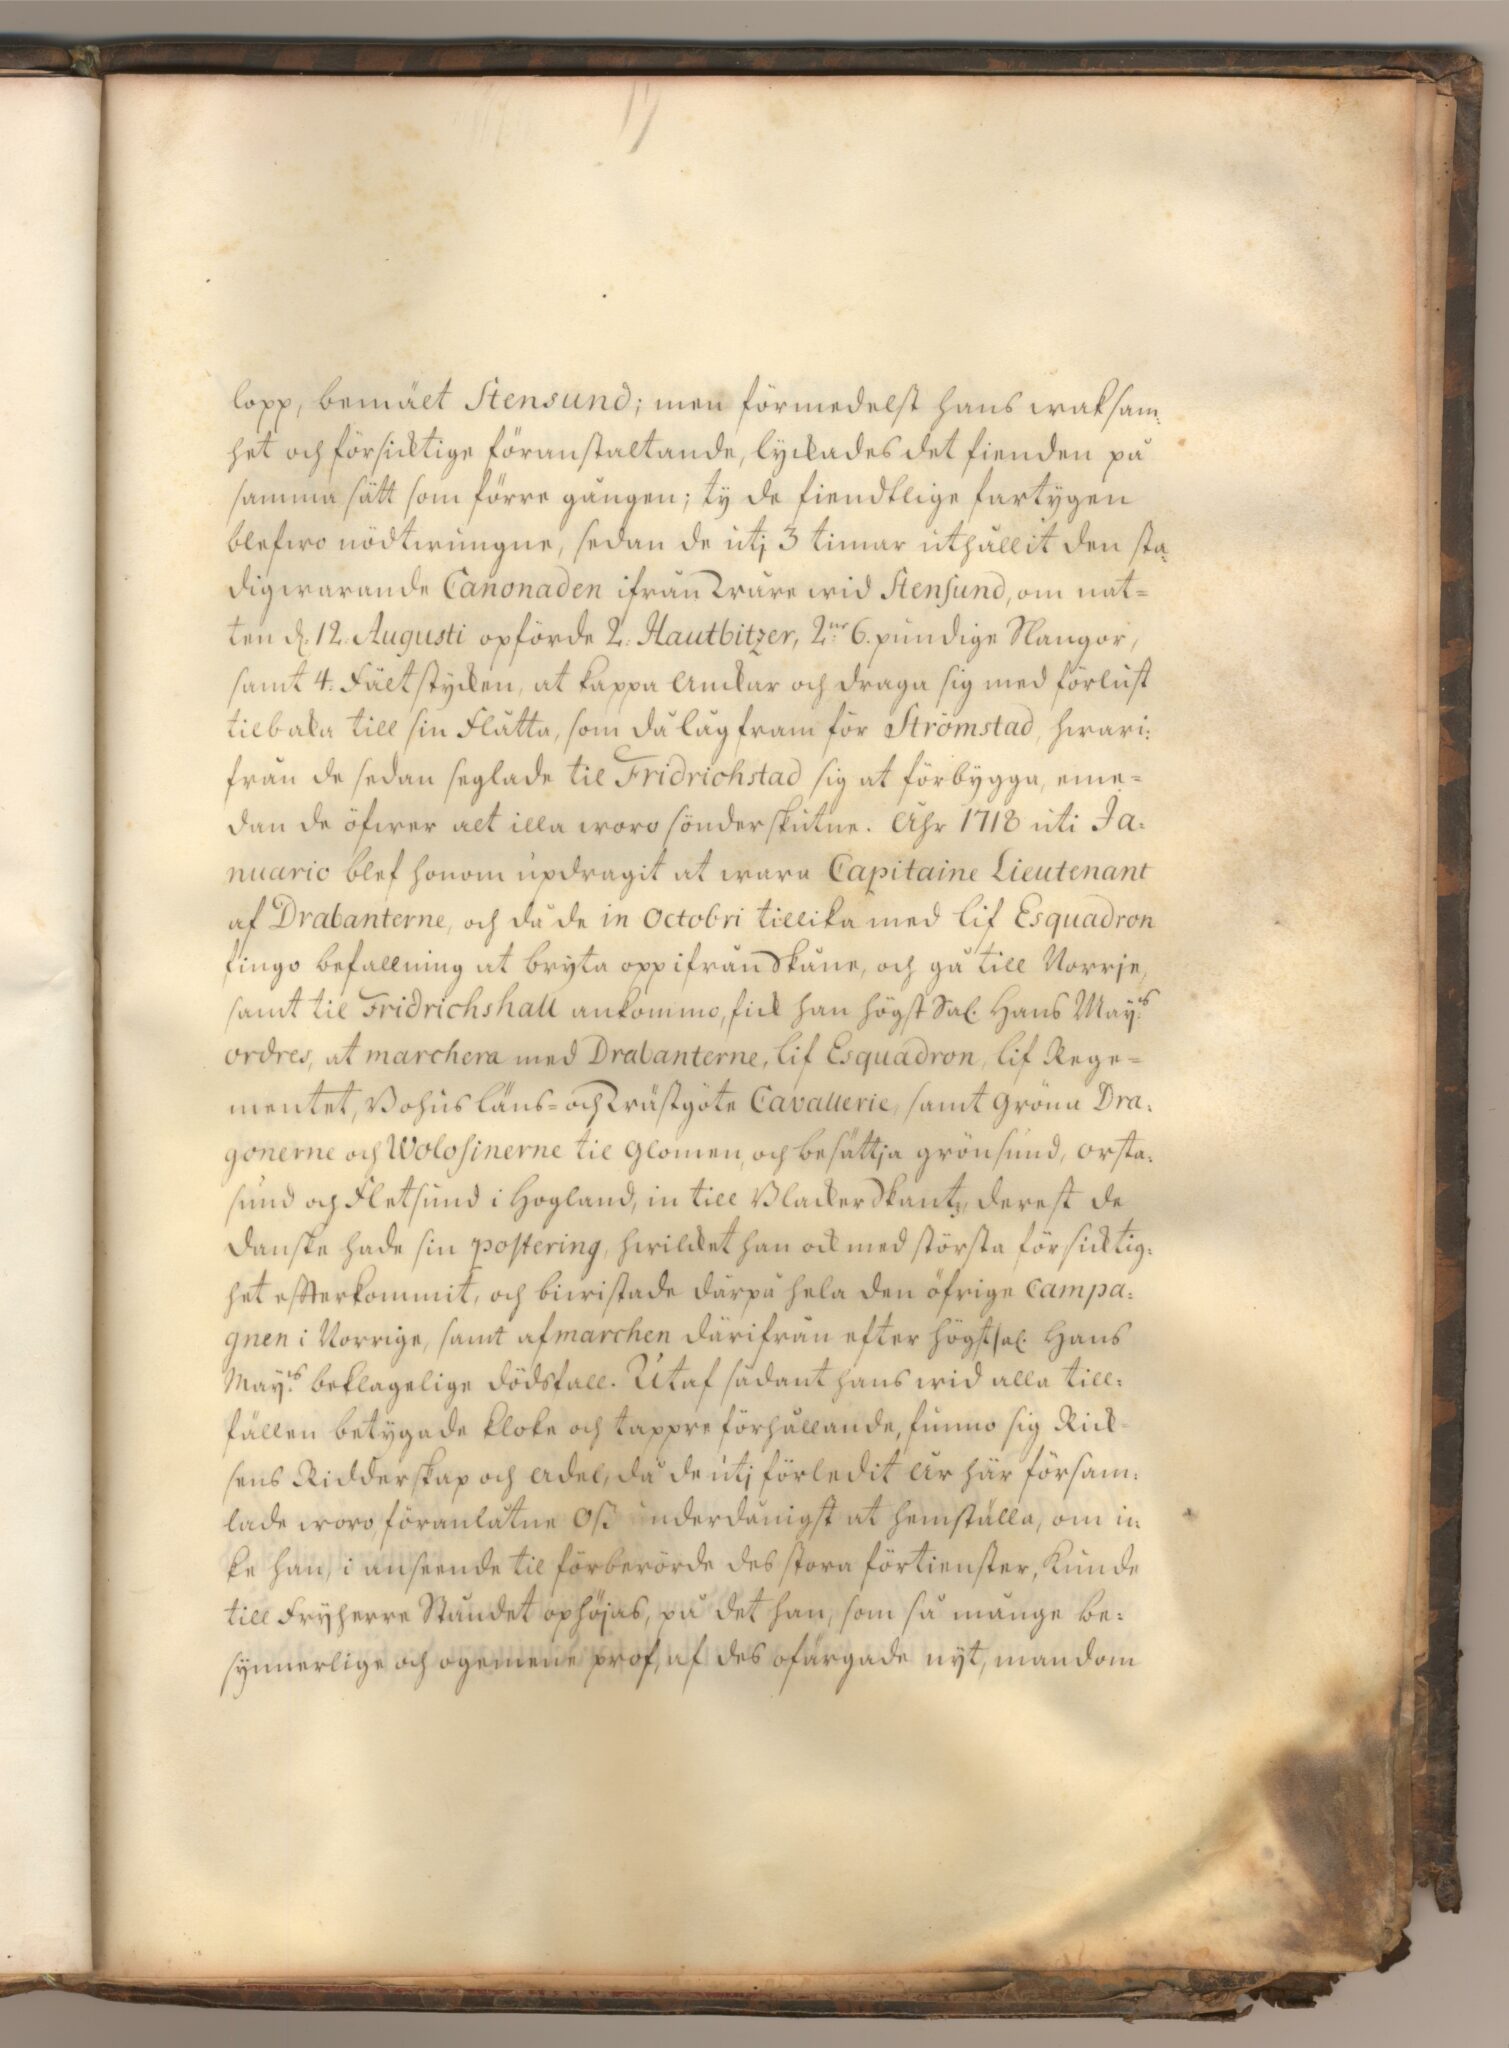 lopp, bemält Stensund; men förmedelst hans waksam:
het och försicktige föranstaltande, lyckades det fienden på
samma sätt som förre gången; ty de fiendtlige fartygen
blefwo nödtwungne, sedan de utj 3 timar uthållit den sta:
digwarande Canonaden ifrån Wråre wid Stensund, om nat=
ten d. 12. Augusti opförde 2. Hautbitzer, 2ne 6. pundige Slangor,
samt 4. Fältstycken, at kappa Anckar och draga sig med förlust
tilbaka till sin Flåtta, som då låg fram för Strömstad, hwari:
från de sedan seglade til Fridrichstad sig at förbygga, eme=
dan de öfwer alt illa woro sönderskutne. Åhr 1718 uti Ja:
nuario blef honom updragit at wara Capitaine Lieutenant
af Drabanterne, och då de in Octobri tillika med Lif Esquadron
fingo befallning at bryta opp ifrån Skåne, och gå till Norrje,
samt til Fridrichshall ankommo, fick han högst Sal. Hans Mayts
ordres, at marchera med Drabanterne, Lif Esquadron, Lif Rege=
mentet, Bohus läns= och Wästgöte Cavallerie, samt Gröna Dra:
gonerne och Wolosinerne til Glomen, och besättja Grönsund, Orsta:
sund och Fletsund i Hogland, in till Blacker Skantz, derest de
Danske hade sin postering, hwilcket han ock med största försicktig:
het effterkommit, och biwistade därpå hela den öfrige Campa:
gnen i Norrige, samt afmarchen därifrån efter Högstsal. Hans
Mayts beklagelige dödsfall. Utaf sådant hans wid alla till:
fällen betygade kloke och tappre förhållande, funno sig Rick=
sens Ridderskap och Adel, då de utj förledit År här försam:
lade woro, föranlåtne Oß underdånigst at hemställa, om in:
ke han, i anseende til förberörde des stora förtienster, kunde
till Fryherre Ståndet ophöjas, på det han, som så många be:
synnerlige och ogemene prof, af des ofärgade nyt, mandom